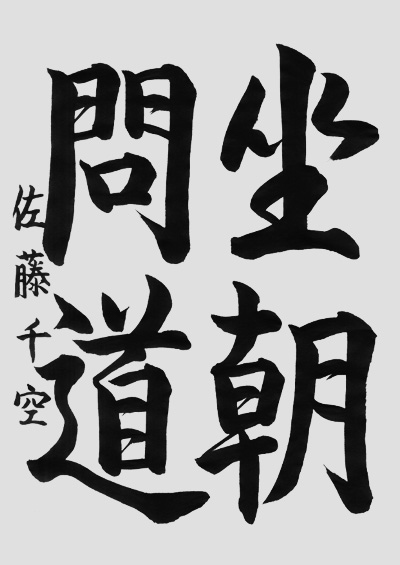 坐朝
問道
佐藤千空